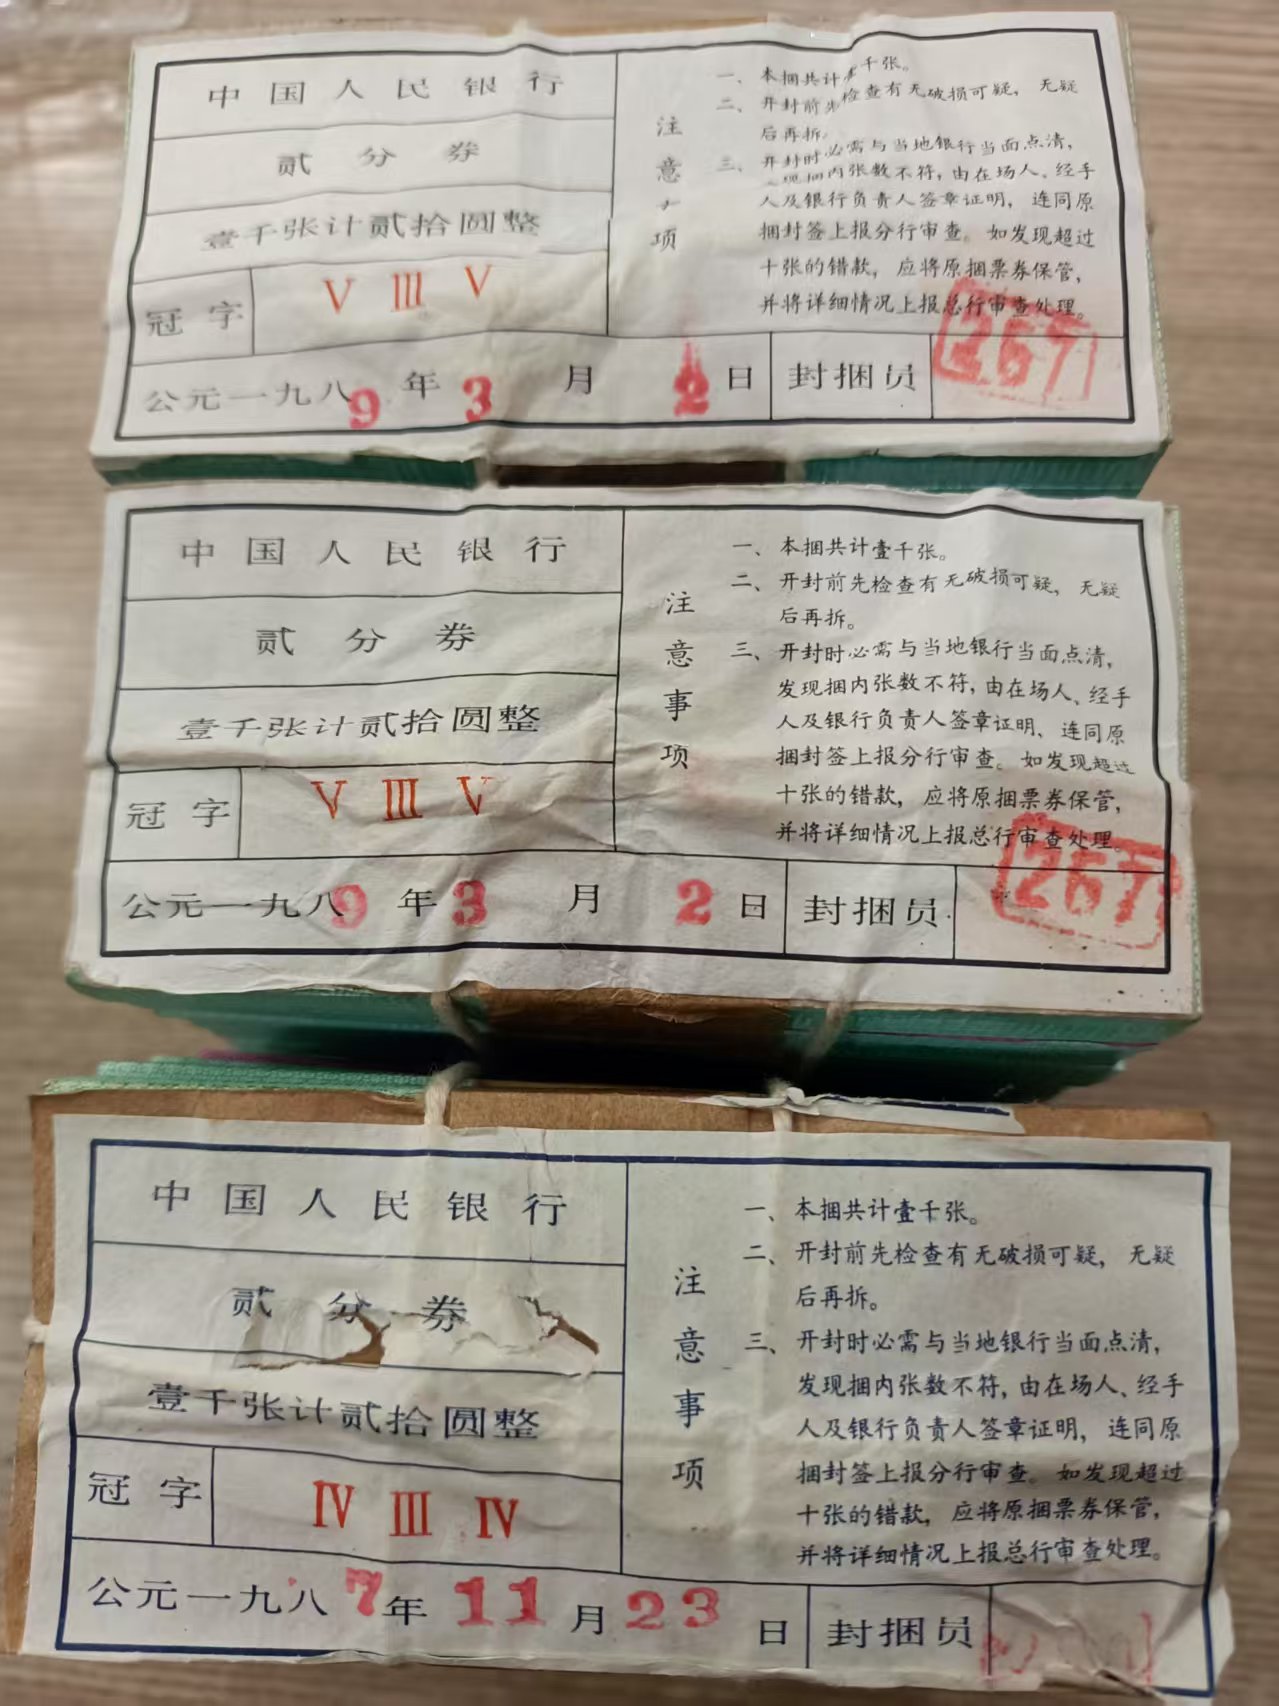 中国人民银行
贰分券
壹千张计贰拾圆整
冠字 V III V
公元一九八9年3月2日
封捆员
267
注意项
一、本捆共计壹千张。
二、开封前先检查有无破损可疑，无疑
后再拆
三、开封时必需与当地银行当面点清，
现捆内张数不符，由在场人、经手
人及银行负责人签章证明，连同原
捆封签上报分行审查。如发现超过
十张的错款，应将原捆票券保管，
并将详细情况上报总行审查处理。
中国人民银行
贰分券
壹千张计贰拾圆整
冠字 V III V
公元一九八9年3月2日
封捆员
267
注意事项
一、本捆共计壹千张。
二、开封前先检查有无破损可疑，无疑
后再拆。
三、开封时必需与当地银行当面点清，
发现捆内张数不符，由在场人、经手
人及银行负责人签章证明、连同原
捆封签上报分行审查。如发现超过
十张的错款，应将原捆票券保管，
并将详细情况上报总行审查处理。
中国人民银行
贰分券
壹千张计贰拾圆整
冠字 IV III IV
公元一九八7年11月23日
封捆员
注意事项
一、本捆共计壹千张。
二、开封前先检查有无破损可疑，无疑
后再拆。
三、开封时必需与当地银行当面点清，
发现捆内张数不符，由在场人、经手
人及银行负责人签章证明，连同原
捆封签上报分行审查。如发现超过
十张的错款，应将原捆票券保管，
并将详细情况上报总行审查处理。